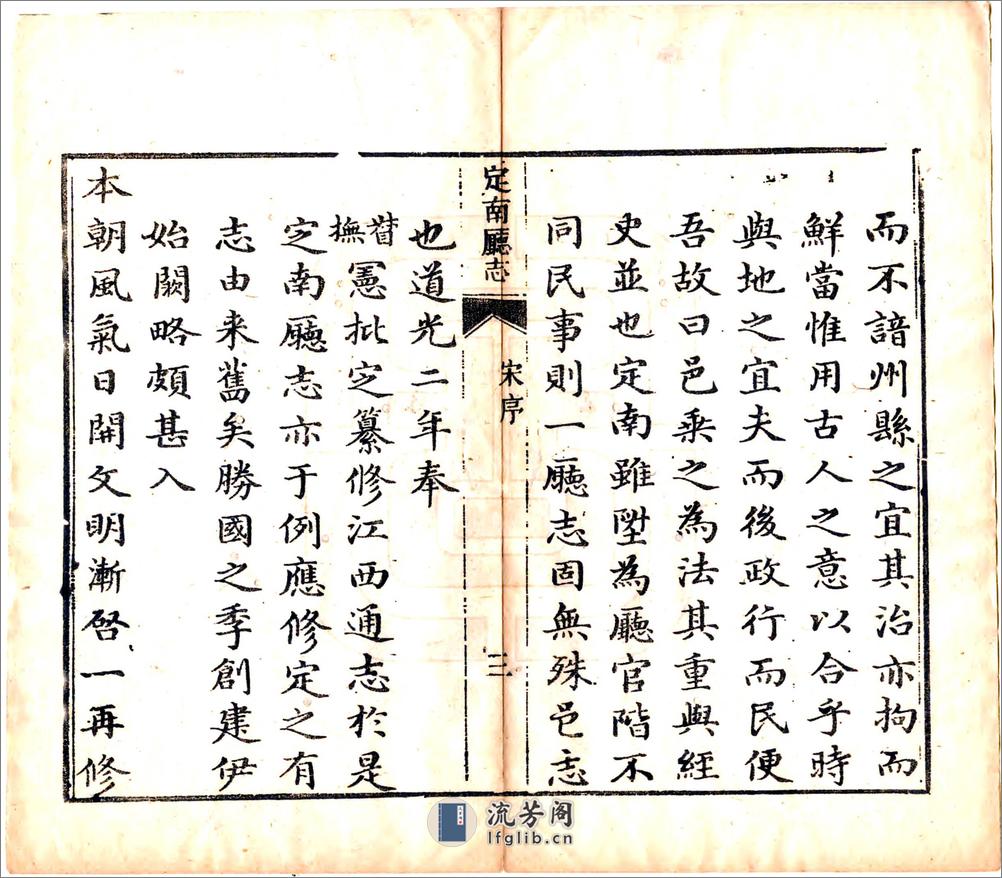 而不諳州縣之宜其治亦拘而
鮮當惟用古人之意以合乎時
與地之宜夫而後政行而民便
吾故曰邑乘之為法其重與經
史並也定南雖陞為廳官階不
同民事則一廳志固無殊邑志
定南廳志
宋序
三
也道光二年奉
督撫憲批定纂修江西通志於是
定南廳志亦于例應修定之有
志由来舊矣勝國之季創建伊
始闕略頗甚入
本朝風氣日開文明漸啓一再修
流芳阁
lfglib.cn